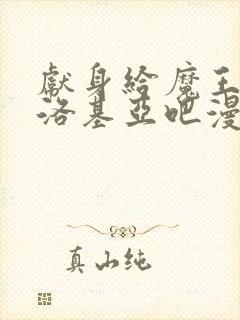 獻身給魔王
洛基亞吧漫
真山纯